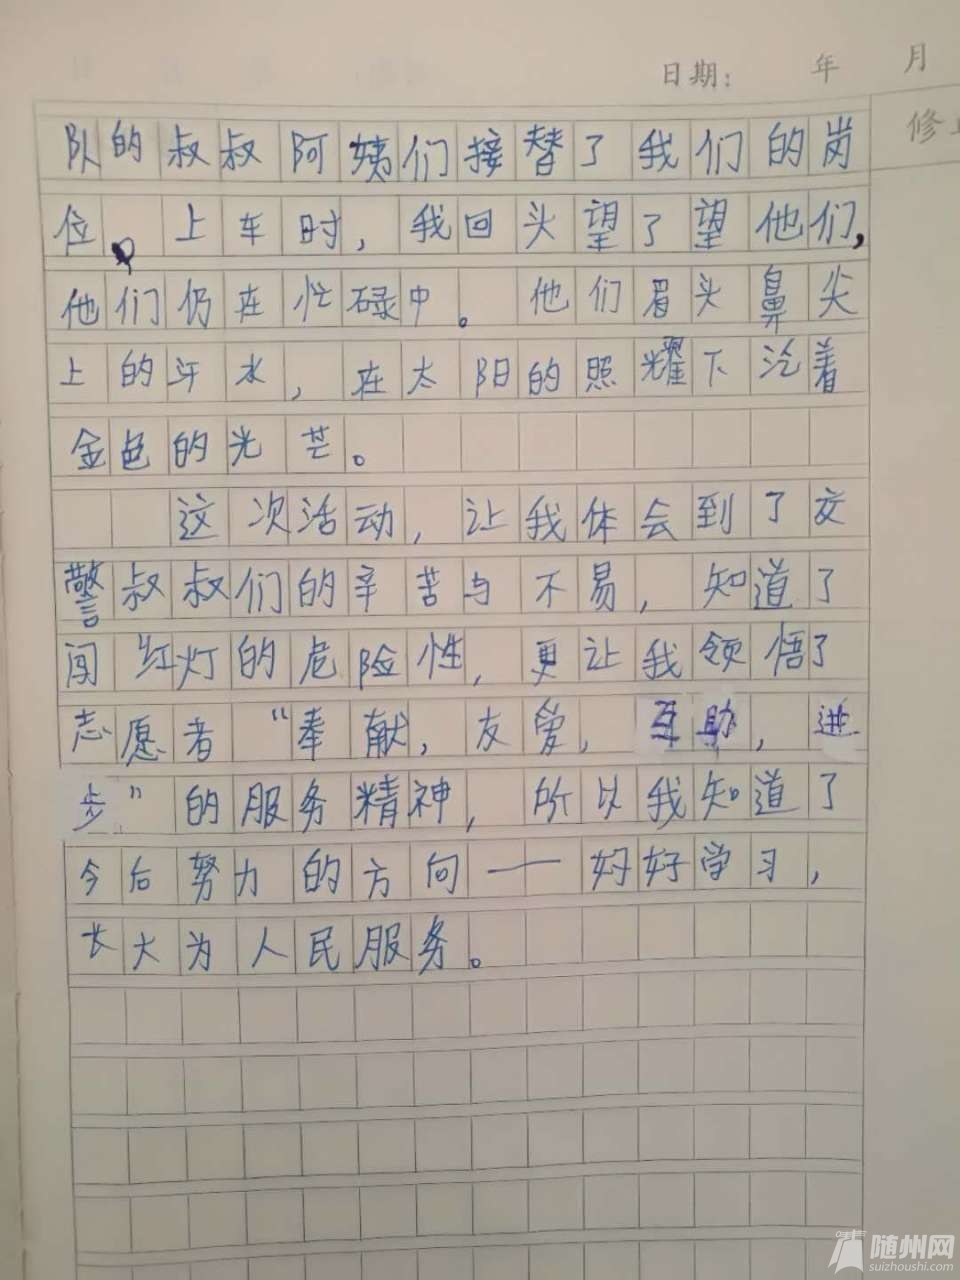 日期： 年 月
修
队的叔叔阿姨们接替了我们的岗
位。上车时，我回头望了望他们，
他们仍在忙碌中。他们眉头鼻尖
上的汗水，在太阳的照耀下泛着
金色的光芒。
这次活动，让我体会到了交
警叔叔们的辛苦与不易，知道了
闯红灯的危险性，更让我领悟了
志愿者“奉献，友爱，互助，进
步”的服务精神，所以我知道了
今后努力的方向——好好学习，
长大为人民服务。
随州网
suizhoushi.com